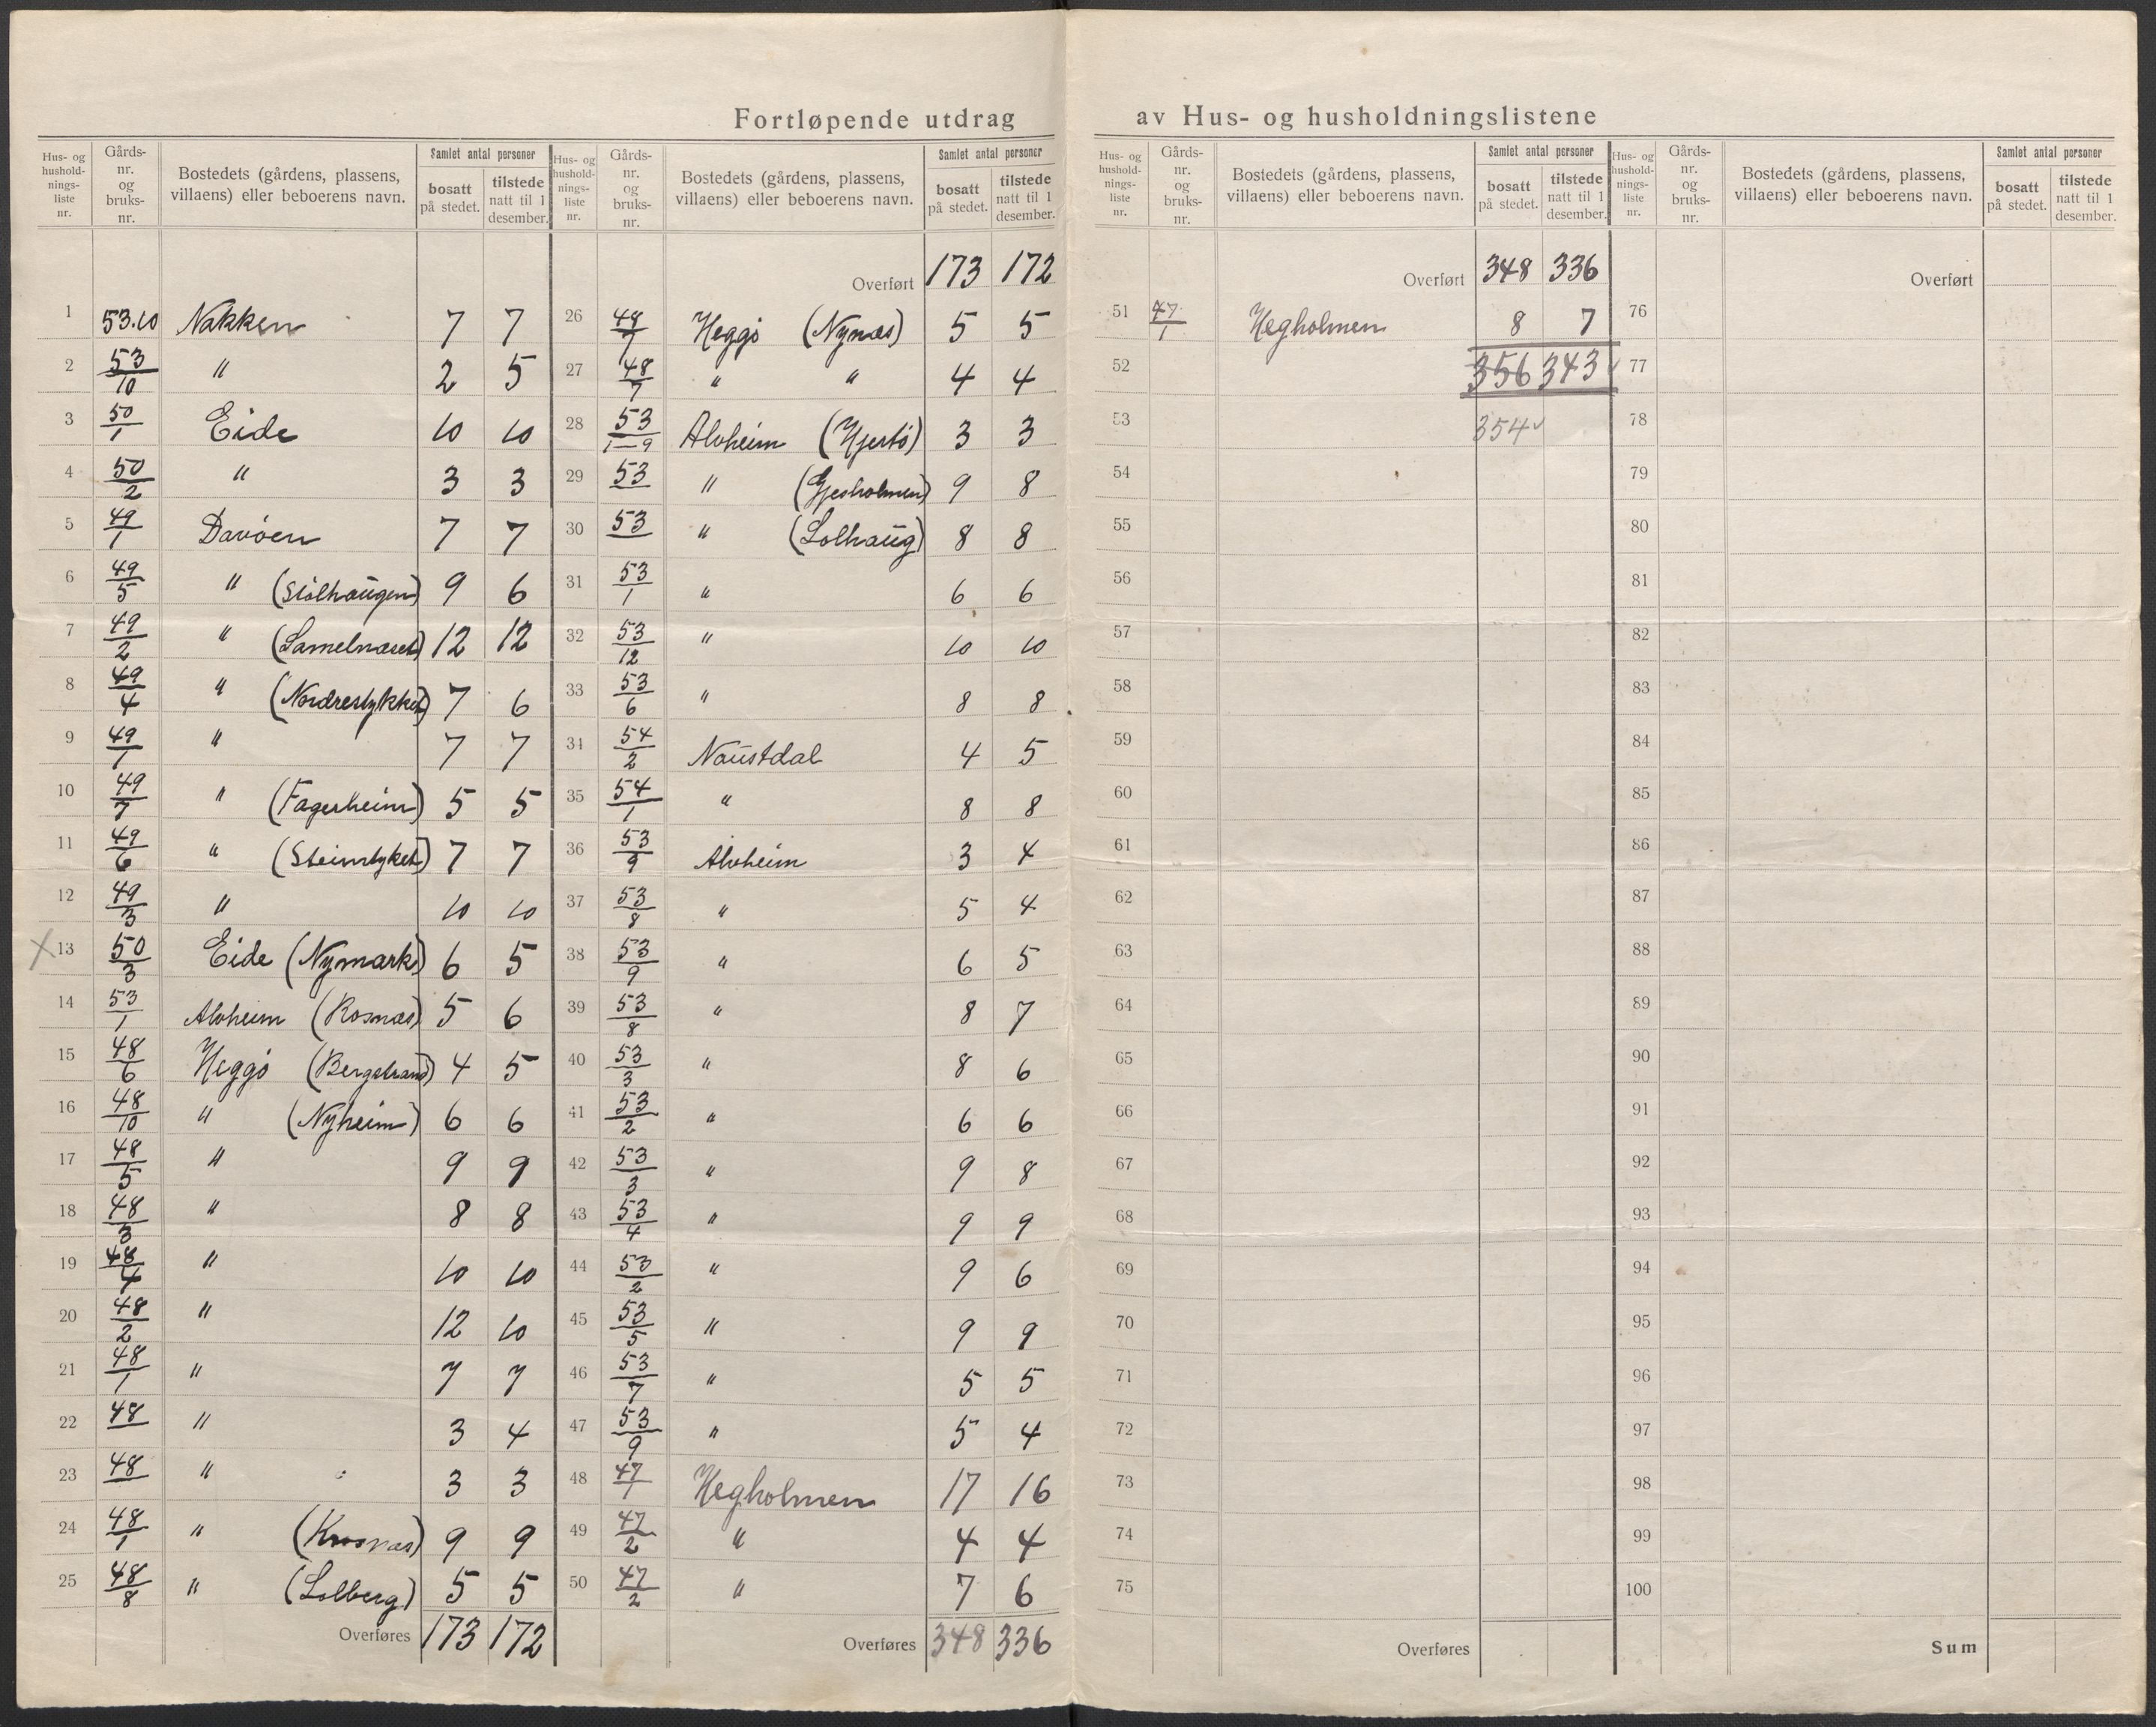 Fortløpende utdrag av Hus- og husholdningslistene
Hus- og husholdningsliste nr. | Gårds-nr. og bruks-nr. | Bostedets (gårdens, plassens, villaens) eller beboerens navn. | Samlet antal personer | bosatt på stedet. | tilstede natt til 1 desember.
1 53.10 Nakken 7 7
2 53/10 " 2 5
3 50/1 Eide 10 10
4 50/2 " 3 3
5 49/1 Davøen 7 7
6 49/5 " (Stølhaugen) 9 6
7 49/2 " (Lamelnæset) 12 12
8 49/4 " (Nordrestykket) 7 6
9 49/1 " 7 7
10 49/7 " (Fagerheim) 5 5
11 49/6 " (Steinstyket) 7 7
12 49/3 " 10 10
X 13 50/3 Eide (Nymark) 6 5
14 53/1 Alvheim (Rosnæs) 5 6
15 48/6 Heggø (Bergstrand) 4 5
16 48/10 " (Nyheim) 6 6
17 48/5 " 9 9
18 48/3 " 8 8
19 48/4 " 10 10
20 48/2 " 12 10
21 48/1 " 7 7
22 48 " 3 4
23 48 " 3 3
24 48/1 " (Krosnæs) 9 9
25 48/8 " (Solberg) 5 5
Overføres 173 172
Hus- og husholdningsliste nr. | Gårds-nr. og bruks-nr. | Bostedets (gårdens, plassens, villaens) eller beboerens navn. | Samlet antal personer | bosatt på stedet. | tilstede natt til 1 desember.
Overført 173 172
26 48/7 Heggø (Nynæs) 5 5
27 48/7 " " 4 4
28 53/1-9 Alvheim (Hjertø) 3 3
29 53 " (Gjesholmen) 9 8
30 53 " (Solhaug) 8 8
31 53/1 " 6 6
32 53/12 " 10 10
33 53/6 " 8 8
34 54/2 Naustdal 4 5
35 54/1 " 8 8
36 53/9 Alvheim 3 4
37 53/8 " 5 4
38 53/9 " 6 5
39 53/8 " 8 7
40 53/3 " 8 6
41 53/2 " 6 6
42 53/3 " 9 8
43 53/4 " 9 9
44 53/2 " 9 6
45 53/5 " 9 9
46 53/7 " 5 5
47 53/9 " 5 4
48 47/1 Hegholmen 17 16
49 47/2 " 4 4
50 47/2 " 7 6
Overføres 348 336
Hus- og husholdningsliste nr. | Gårds-nr. og bruks-nr. | Bostedets (gårdens, plassens, villaens) eller beboerens navn. | Samlet antal personer | bosatt på stedet. | tilstede natt til 1 desember.
Overført 348 336
51 47/1 Hegholmen 8 7
52 356 343 ✓
53 354 ✓
54
55
56
57
58
59
60
61
62
63
64
65
66
67
68
69
70
71
72
73
74
75
Overføres
Hus- og husholdningsliste nr. | Gårds-nr. og bruks-nr. | Bostedets (gårdens, plassens, villaens) eller beboerens navn. | Samlet antal personer | bosatt på stedet. | tilstede natt til 1 desember.
Overført
76
77
78
79
80
81
82
83
84
85
86
87
88
89
90
91
92
93
94
95
96
97
98
99
100
Sum